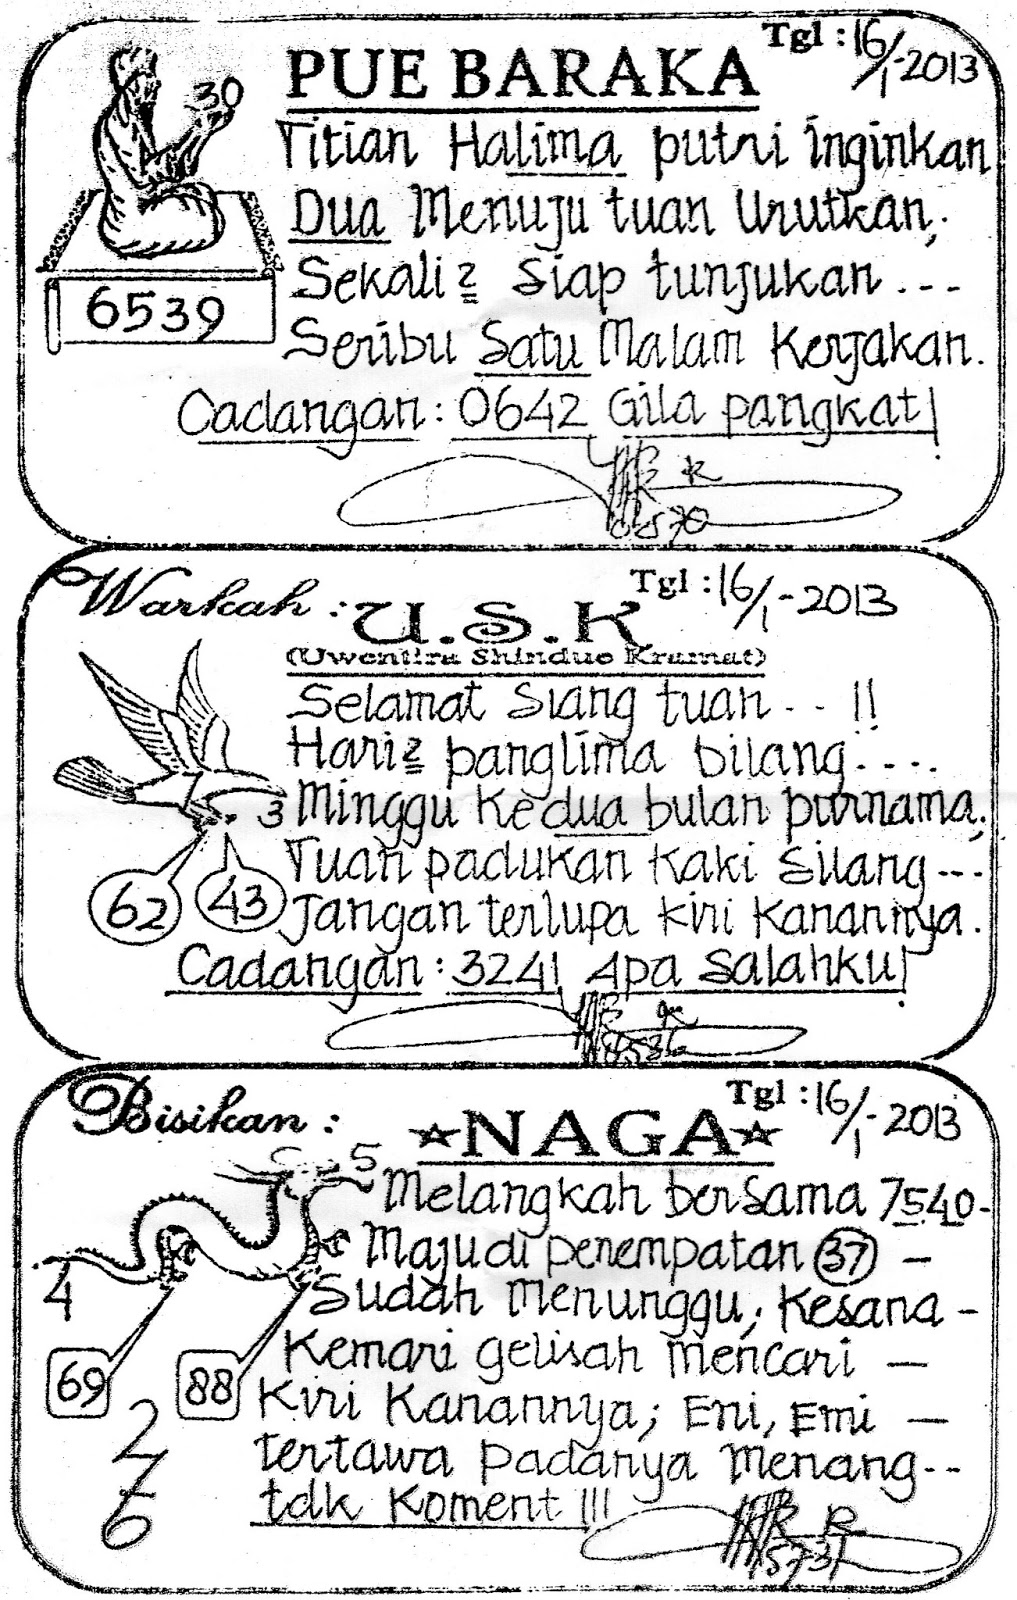 Tgl : 16/1-2013
PUE BARAKA
30
Titian Halima putri inginkan
Dua Menuju tuan Urutkan,.
Sekali2 Siap tunjukan ...
6539
Seribu Satu Malam Kerjakan.
Cadangan : 0642 Gila pangkat!
Tgl : 16/1-2013
Warkah : U.S.K
(Uwentira Shinduo Kramat)
Selamat Siang tuan .. !!
Hari2 panglima bilang ....
3 Minggu Kedua bulan purnama,.
Tuan padukan kaki Silang ---
62 43 Jangan terlupa kiri Kanannya.
Cadangan : 3241 Apa Salahku!
Tgl : 16/1-2013
Bisikan : NAGA
5 Melangkah bersama 7540-
Maju di penempatan 37 -
4 Sudah Menunggu, Kesana -
Kemari gelisah Mencari -
69 88 Kiri Kanannya; Eni, Emi -
2 tertawa padanya Menang --
7
6 tdk Koment !!!